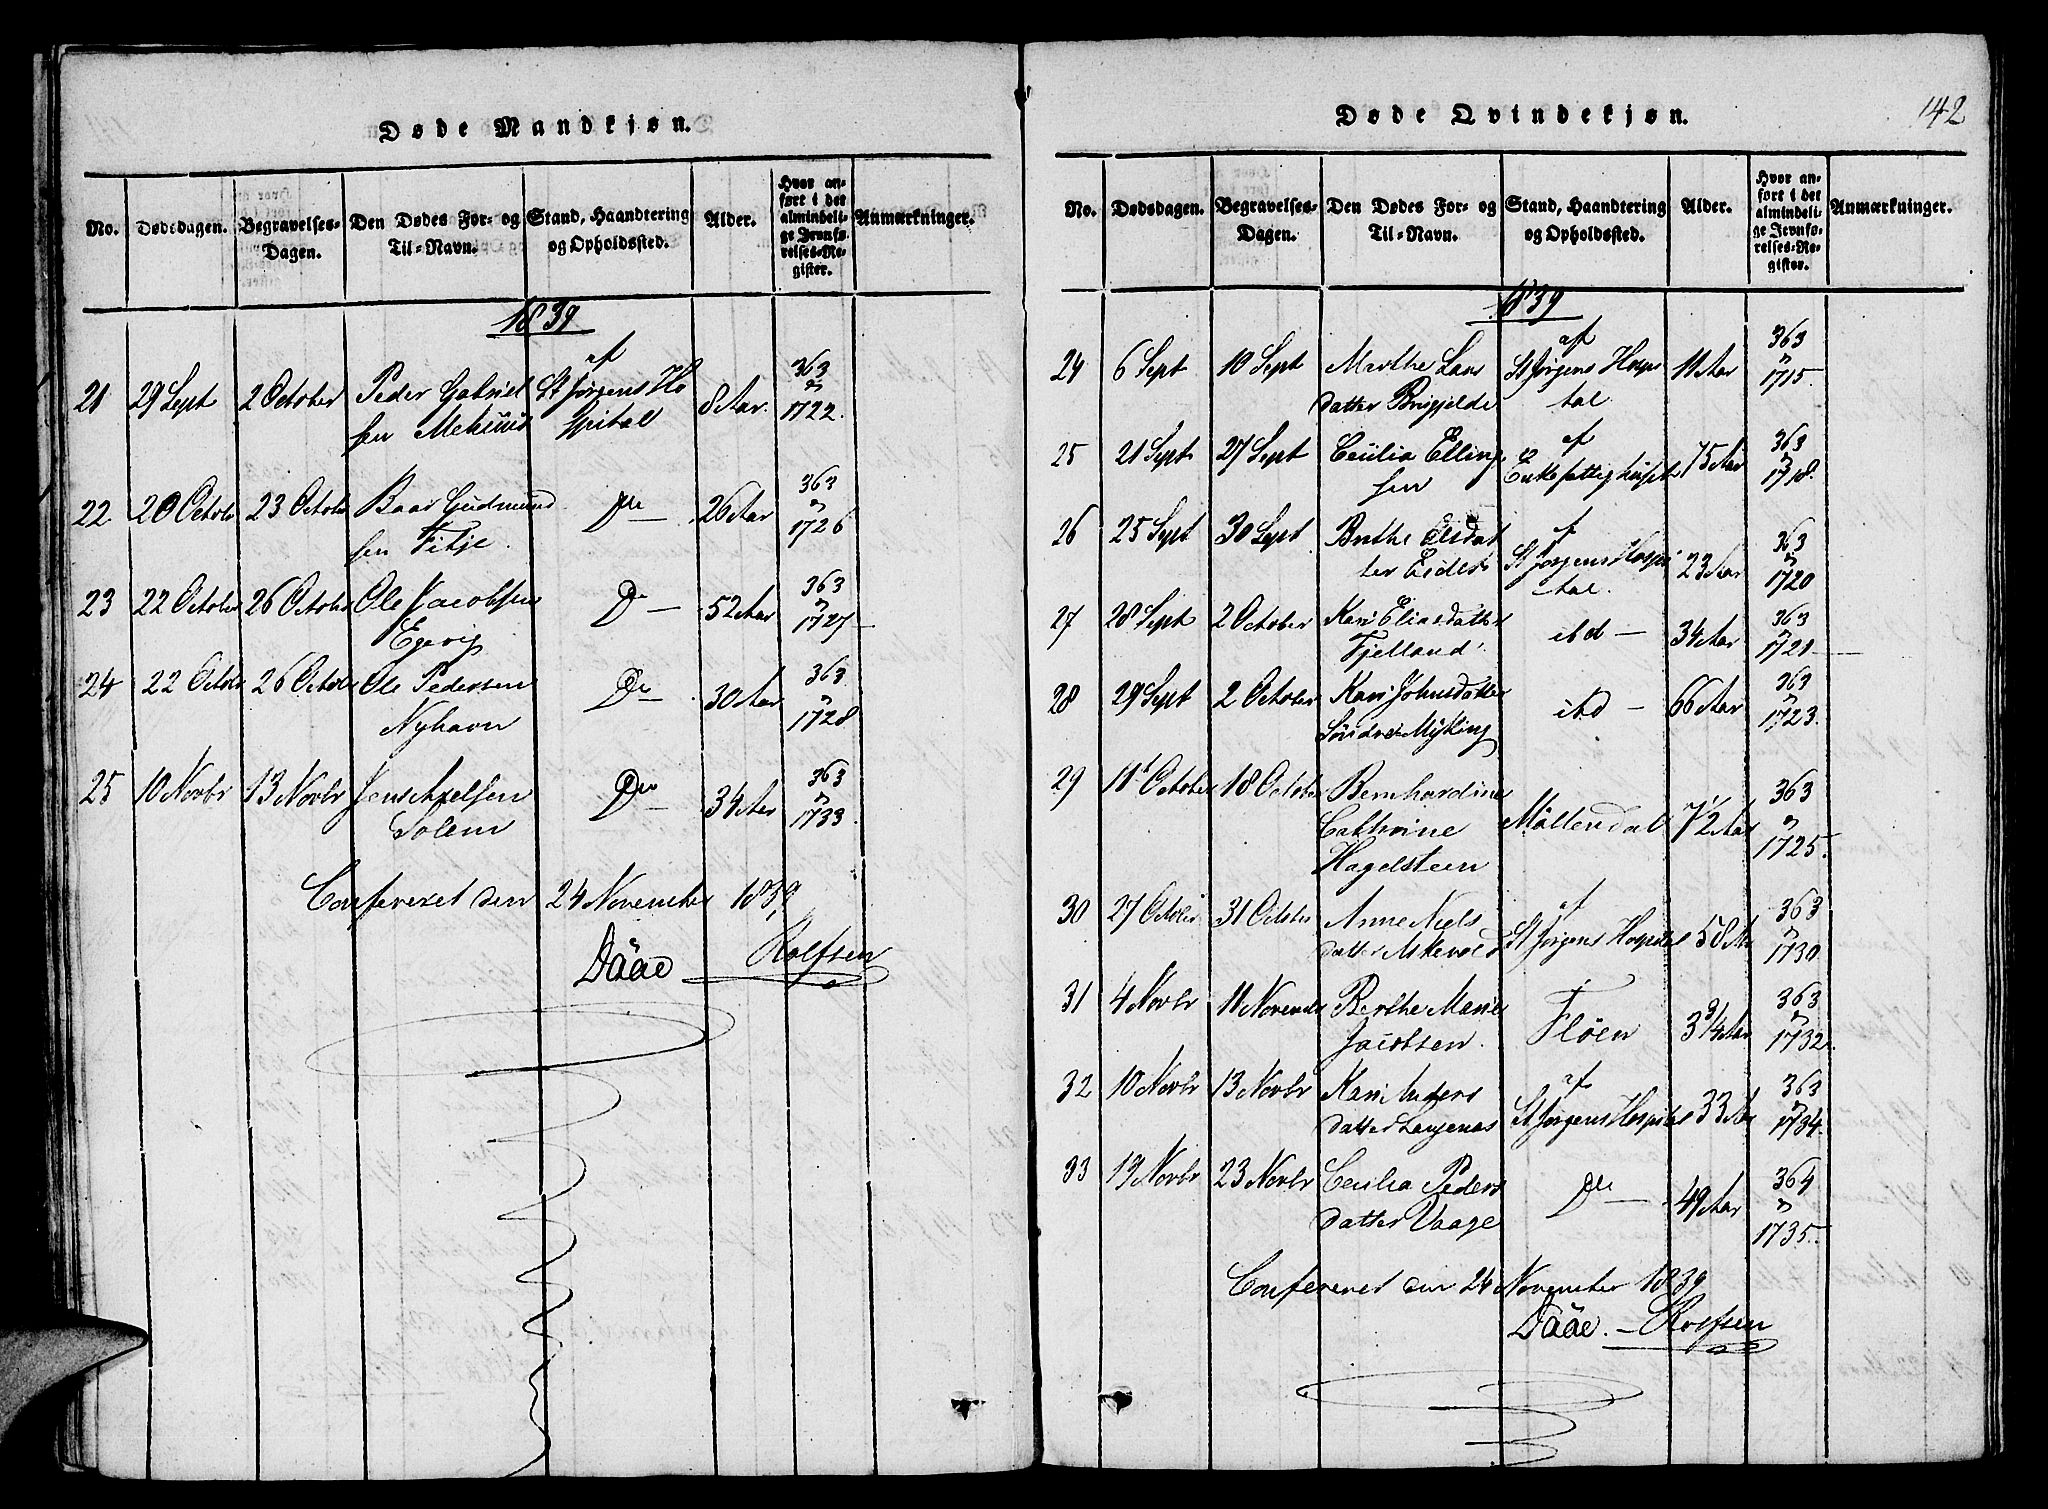 Døde Mandkjøn.
No.
Dødsdagen.
Begravelses-
Dagen.
Den Dødes For- og
Til-Navn.
Stand, Haandtering
og Opholdssted.
Alder.
Hvor an-
ført i det
almindeli-
ge Jevnfø-
relses-Re-
gister.
Anmærkninger.
1839
21 29 Sept 2 October Peder Gabriel
sen
af
St Jørgens Ho
spital
8 Aar.
363
1722.
22 20 Octobr 23 Octobr Baar Gudmund
sen Fitje.
Do
26 Aar
363
1726
23 22 October 26 October Ole Jacobsen
Do
52 Aar
363
1727
24 22 Octobr 26 Octobr Ole Pedersen
Nyhavn
Do
30 Aar
363
1728.
25 10 Novbr 13 Novbr Jens Axelsen
Solem
Do
34 Aar
363
1733
Confereret den 24 November 1839
Dååe Rolfsen
142
Døde Qvindekjøn.
No.
Dødsdagen.
Begravelses-
Dagen.
Den Dødes For- og
Til-Navn.
Stand, Haandtering
og Opholdssted.
Alder.
Hvor an-
ført i det
almindeli-
ge Jevnfø-
relses-Re-
gister.
Anmærkninger.
1839
24 6 Sept 10 Sept Marthe Lars
datter
af
St Jørgens Hospi
tal
11 Aar
363
1715.
25 21 Sept 27 Sept Cecilia Elling
sen
af
75 Aar
363
1718.
26 25 Sept 30 Sept Berthe Elsdat
ter
af
St Jørgens Hospi
tal.
23 Aar
363
1720
27 28 Sept 2 October Kari Eliasdatter
Fjelland
ibd
34 Aar
363
1721
28 29 Sept 2 October Kari Johnsdatter
Søndre Myking
ibd
66 Aar
363
1723.
29 11t October 18 October Bernhardine
Cathrine
Hagelsteen
Møllendal
7 1/2 Aar
363
1725.
30 27 Octobr 31 Octobr Anne Niels
datter Askevold
af
St Jørgens Hospital
58 Aar
363
1730
31 4 Novbr 11 November Berthe Marie
Jacobsen.
Fløen
3 3/4 Aar
363
1732.
32 10 Novbr 13 Novbr Kari Anders
datter
af
St Jørgens Hospital
33 Aar
363
1734.
33 19 Novbr 23 Novbr Cecilia Peders
datter Vaage
Do
49 Aar
364
1735.
Confereret den 24 November 1839
Dååe. Rolfsen